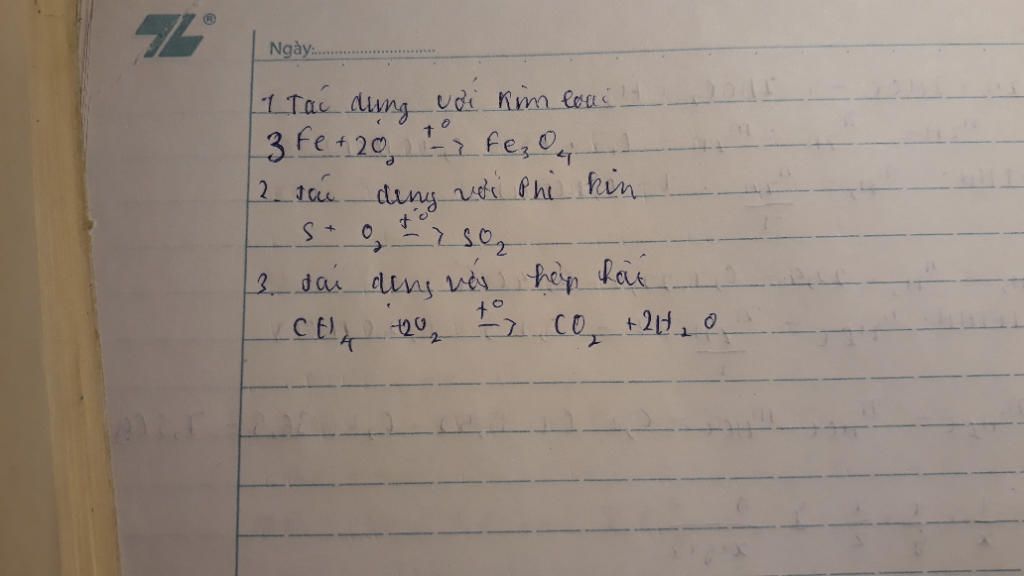 TL®
Ngày:
1 Tác dụng với kim loại
3 Fe + 2O₂ t° –> Fe₃O₄
2. tác dụng với Phi kim
S + O₂ t° –> SO₂
3. tác dụng với hợp chất
CH₄ +2O₂ t° –> CO₂ +2H₂O